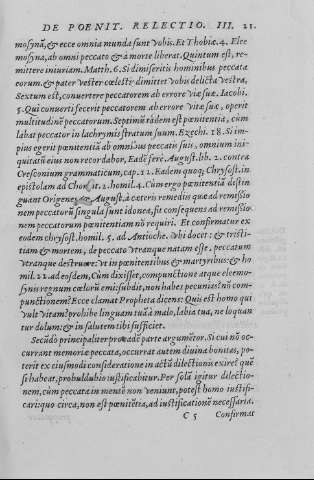 DE POENIT. RELECTIO. III. 21.
mosynã, & ecce omnia munda sunt vobis. Et Thobiæ. 4. Elee
mosyna, ab omni peccato & à morte liberat. Quintum est, re-
mittere iniuriam. Matth. 6. Si dimiseritis hominibus peccata
eorum, & pater vester cœlestis dimittet vobis delicta vestra,
Sextum est, conuertere peccatorem ab errore vitæ suæ. Iacobi.
5. Qui conuerti fecerit peccatorem ab errore vitæ suæ, operit
multitudinẽ peccatorum. Septimũ tãdem est pœnitentia, cùm
lauat peccator in lachrymis stratum suum. Ezech. 18. Si im-
pius egerit pœnitentiã ab omnibus peccatis suis, omnium ini-
quitatũ eius non recordabor, Eadẽ ferè. August. lib. 2. contra
Cresconium grammaticum, cap. 12. Eadem quoq; Chrysost. in
epistolam ad 2. homil. 4. Cùm ergo pœnitentiã distin
guant Origenes, & August. à cæteris remedijs quæ ad remissio
nem peccatorũ singula sunt idonea, fit consequens ad remissio
nem peccatorum pœnitentiam nõ requiri. Et confirmatur ex
eodem chrysost. homil. 5. ad Antioche. Vbi docet: & tristi-
tiam & mortem, de peccato vtranque natam esse, peccatum
vtranque destruere: vt in pœnitentibus & martyribus: & ho
mil. 22. ad eosdem, Cùm dixisset, compunctione atque eleemo-
synis regnum cœlorũ emi: subdit, non habes pecunias? nõ com-
punctionem? Ecce clamat Propheta dicens: Quis est homo qui
vult vitam? prohibe linguam tuã à malo, labia tua, ne loquan
tur dolum: & in salutem tibi sufficiet.
Secũdò principaliter pro eade parte argumẽtor. Si cui nõ oc-
currant memoriæ peccata, occurrat autem diuina bonitas, po-
terit ex eiusmodi consideratione in actũ dilectionis exire? quẽ
si habeat, proculdubio iustificabitur. Per solã igitur dilectio-
nem, cùm peccata in mentẽ non veniunt, potest homo iustifi-
cari: quo circa, non est pœnitẽtia, ad iustificationẽ necessaria.
C 5 Confirmat